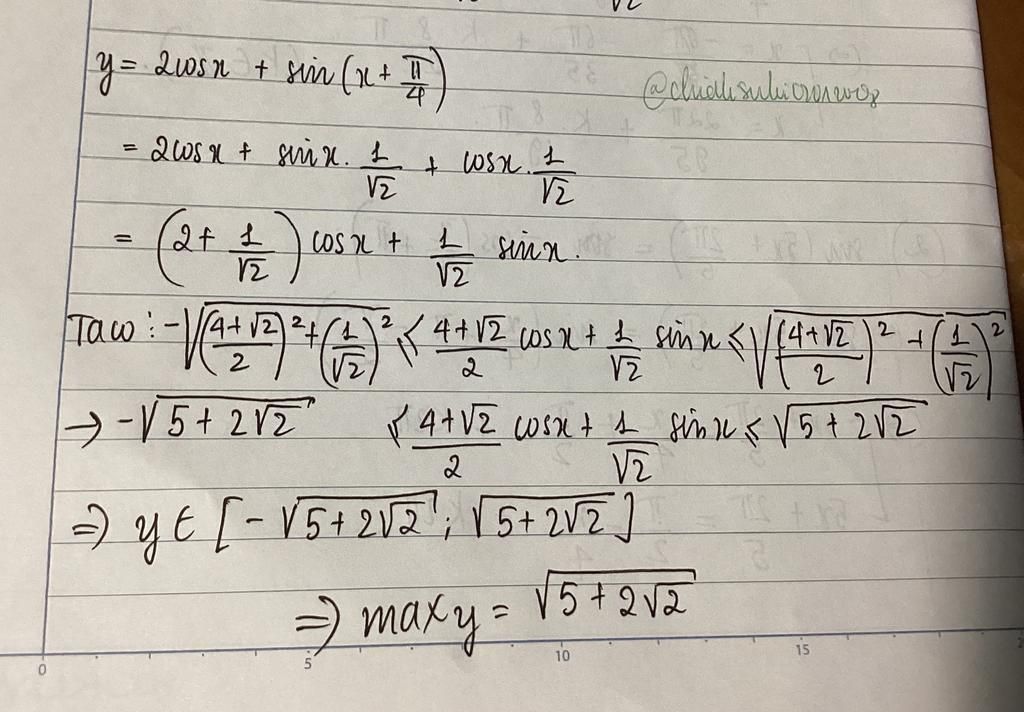 √2
y = 2cosx + sin(x + π/4)
@chidisubicronwos
= 2cosx + sinx. 1/√2 + cosx. 1/√2
= (2 + 1/√2) cosx + 1/√2 sinx.
Taco: -√((4+√2)/2)² + (1/√2)² ≤ (4+√2)/2 cosx + 1/√2 sinx ≤ √((4+√2)/2)² + (1/√2)²
→ -√(5 + 2√2) ≤ (4+√2)/2 cosx + 1/√2 sinx ≤ √(5 + 2√2)
⇒ y ∈ [-√(5+2√2); √(5+2√2)]
⇒ max y = √(5+2√2)
0 5 10 15